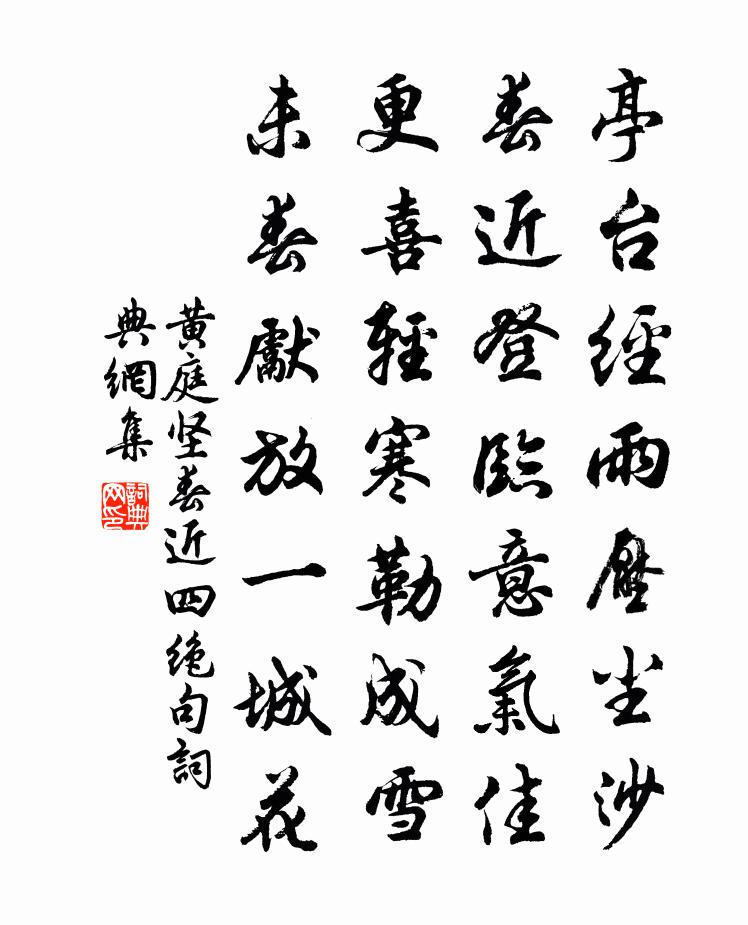 亭台經雨壓尘沙
春近登臨意氣佳
更喜輕寒勒成雪
未春獻放一城花
黄庭坚春近四绝句詞
典網集
詞典网印